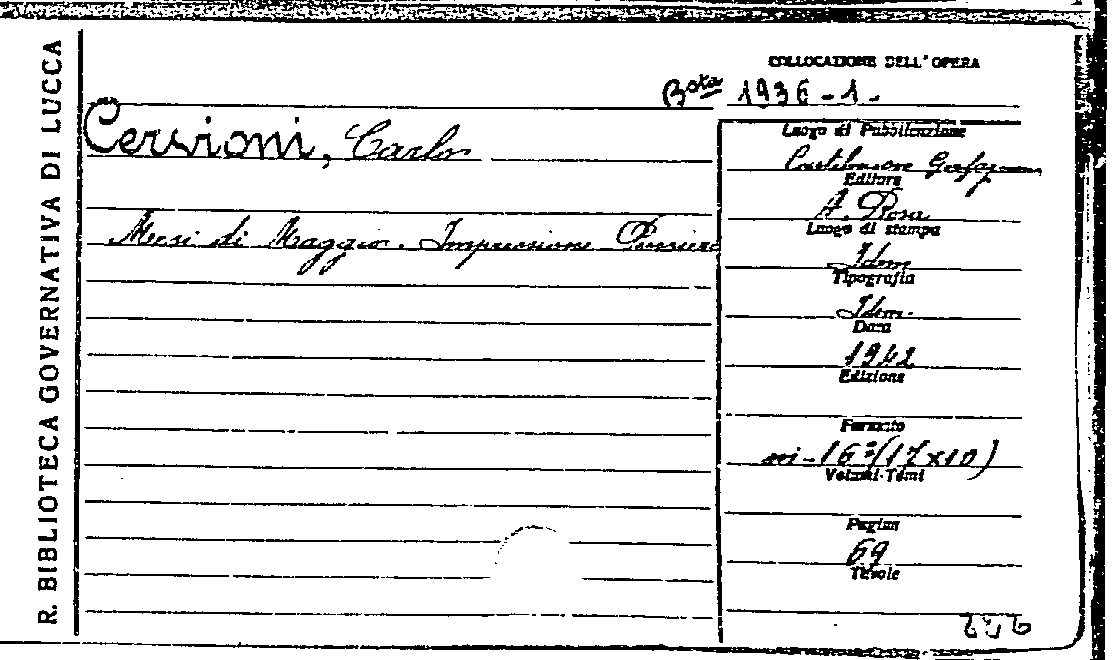 R. BIBLIOTECA GOVERNATIVA DI LUCCA
COLLOCAZIONE DELL'OPERA
Bsta 1936-1-
Cervioni, Carlo
Mesi di Maggio. Impressione Pensiero
Luogo di Pubblicazione
Castelnuovo Garfagnana
Editore
A. Rosa
Luogo di stampa
Idem
Tipografia
Idem.
Data
1942
Edizione
Formato
in-16º (17x10)
Volumi-Tomi
Pagine
69
Tavole